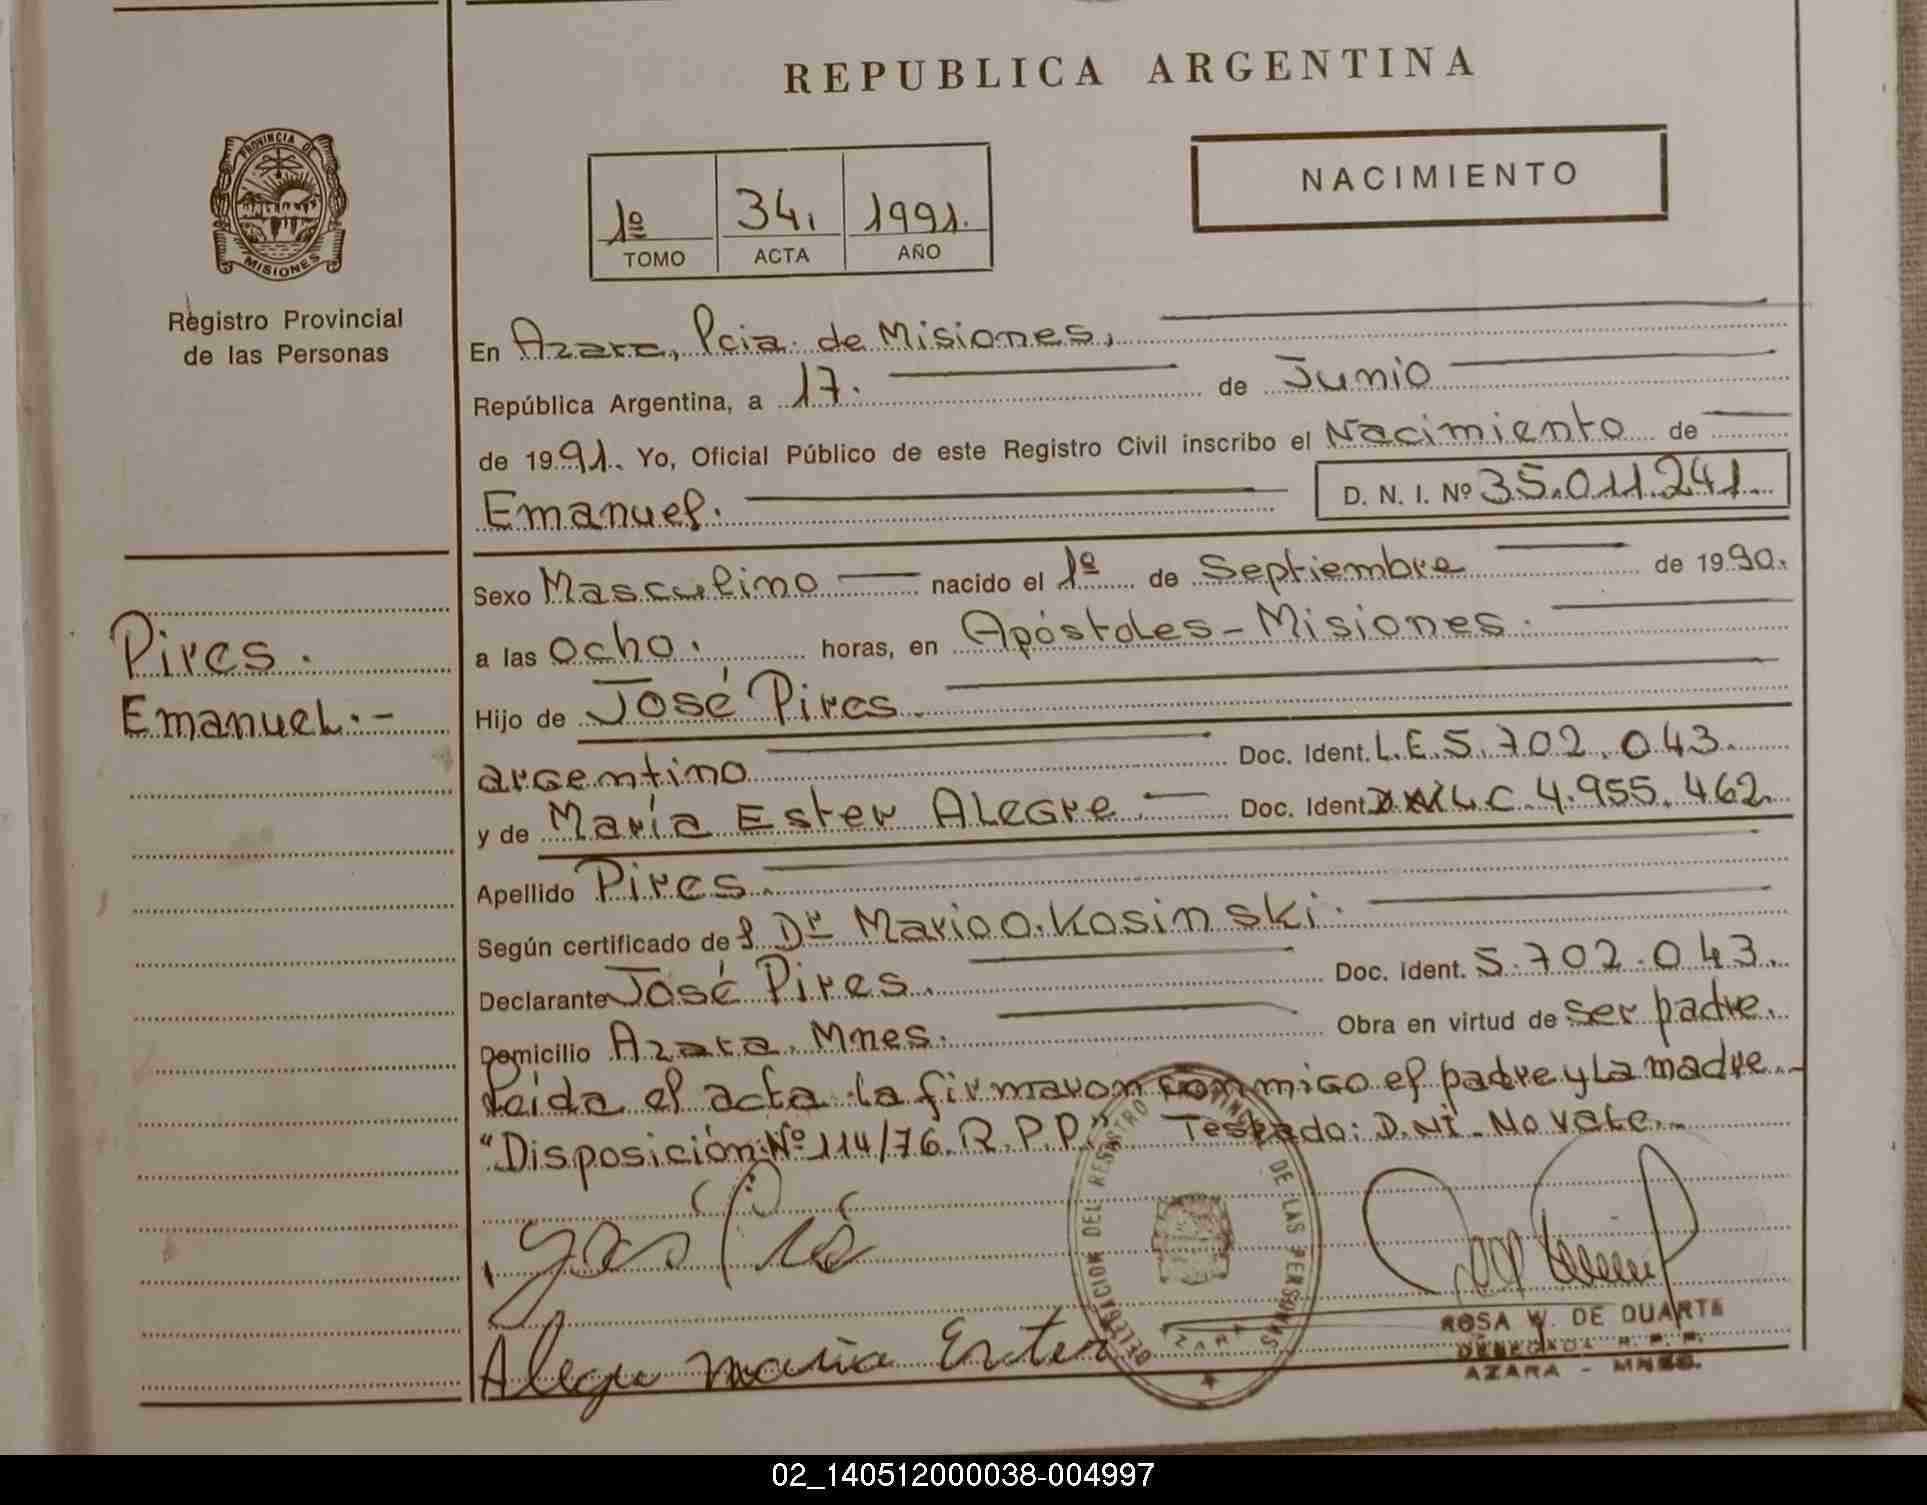 REPUBLICA ARGENTINA
PROVINCIA DE
MISIONES
Registro Provincial
de las Personas
1º 34, 1991.
TOMO ACTA AÑO
NACIMIENTO
En Azara, Pcia. de Misiones,
República Argentina, a 17. de Junio
de 1991. Yo, Oficial Público de este Registro Civil inscribo el Nacimiento de
Emanuel. D. N. I. Nº 35.011.241.
Sexo Masculino nacido el 1º de Septiembre de 1990.
Pires.
a las ocho. horas, en Apóstoles - Misiones.
Emanuel.-
Hijo de José Pires.
argentino Doc. Ident. L.E. 5.702.043.
y de María Ester Alegre. Doc. Ident. D.NI L.C. 4.955.462.
Apellido Pires.
Según certificado del Dr Mario O. Kosinski.
Declarante José Pires. Doc. Ident. 5.702.043.
Domicilio Azara. Mnes. Obra en virtud de ser padre.
Leída el acta la firmaron conmigo el padre y la madre.-
"Disposición Nº 114/76. R.P.P." Testado: D.NI. No vale.
DELEGACION DEL REGISTRO DE LAS PERSONAS
AZARA
Alegre María Ester
ROSA W. DE DUARTE
DELEGADA R. P. P.
AZARA - MNES.
02_140512000038-004997